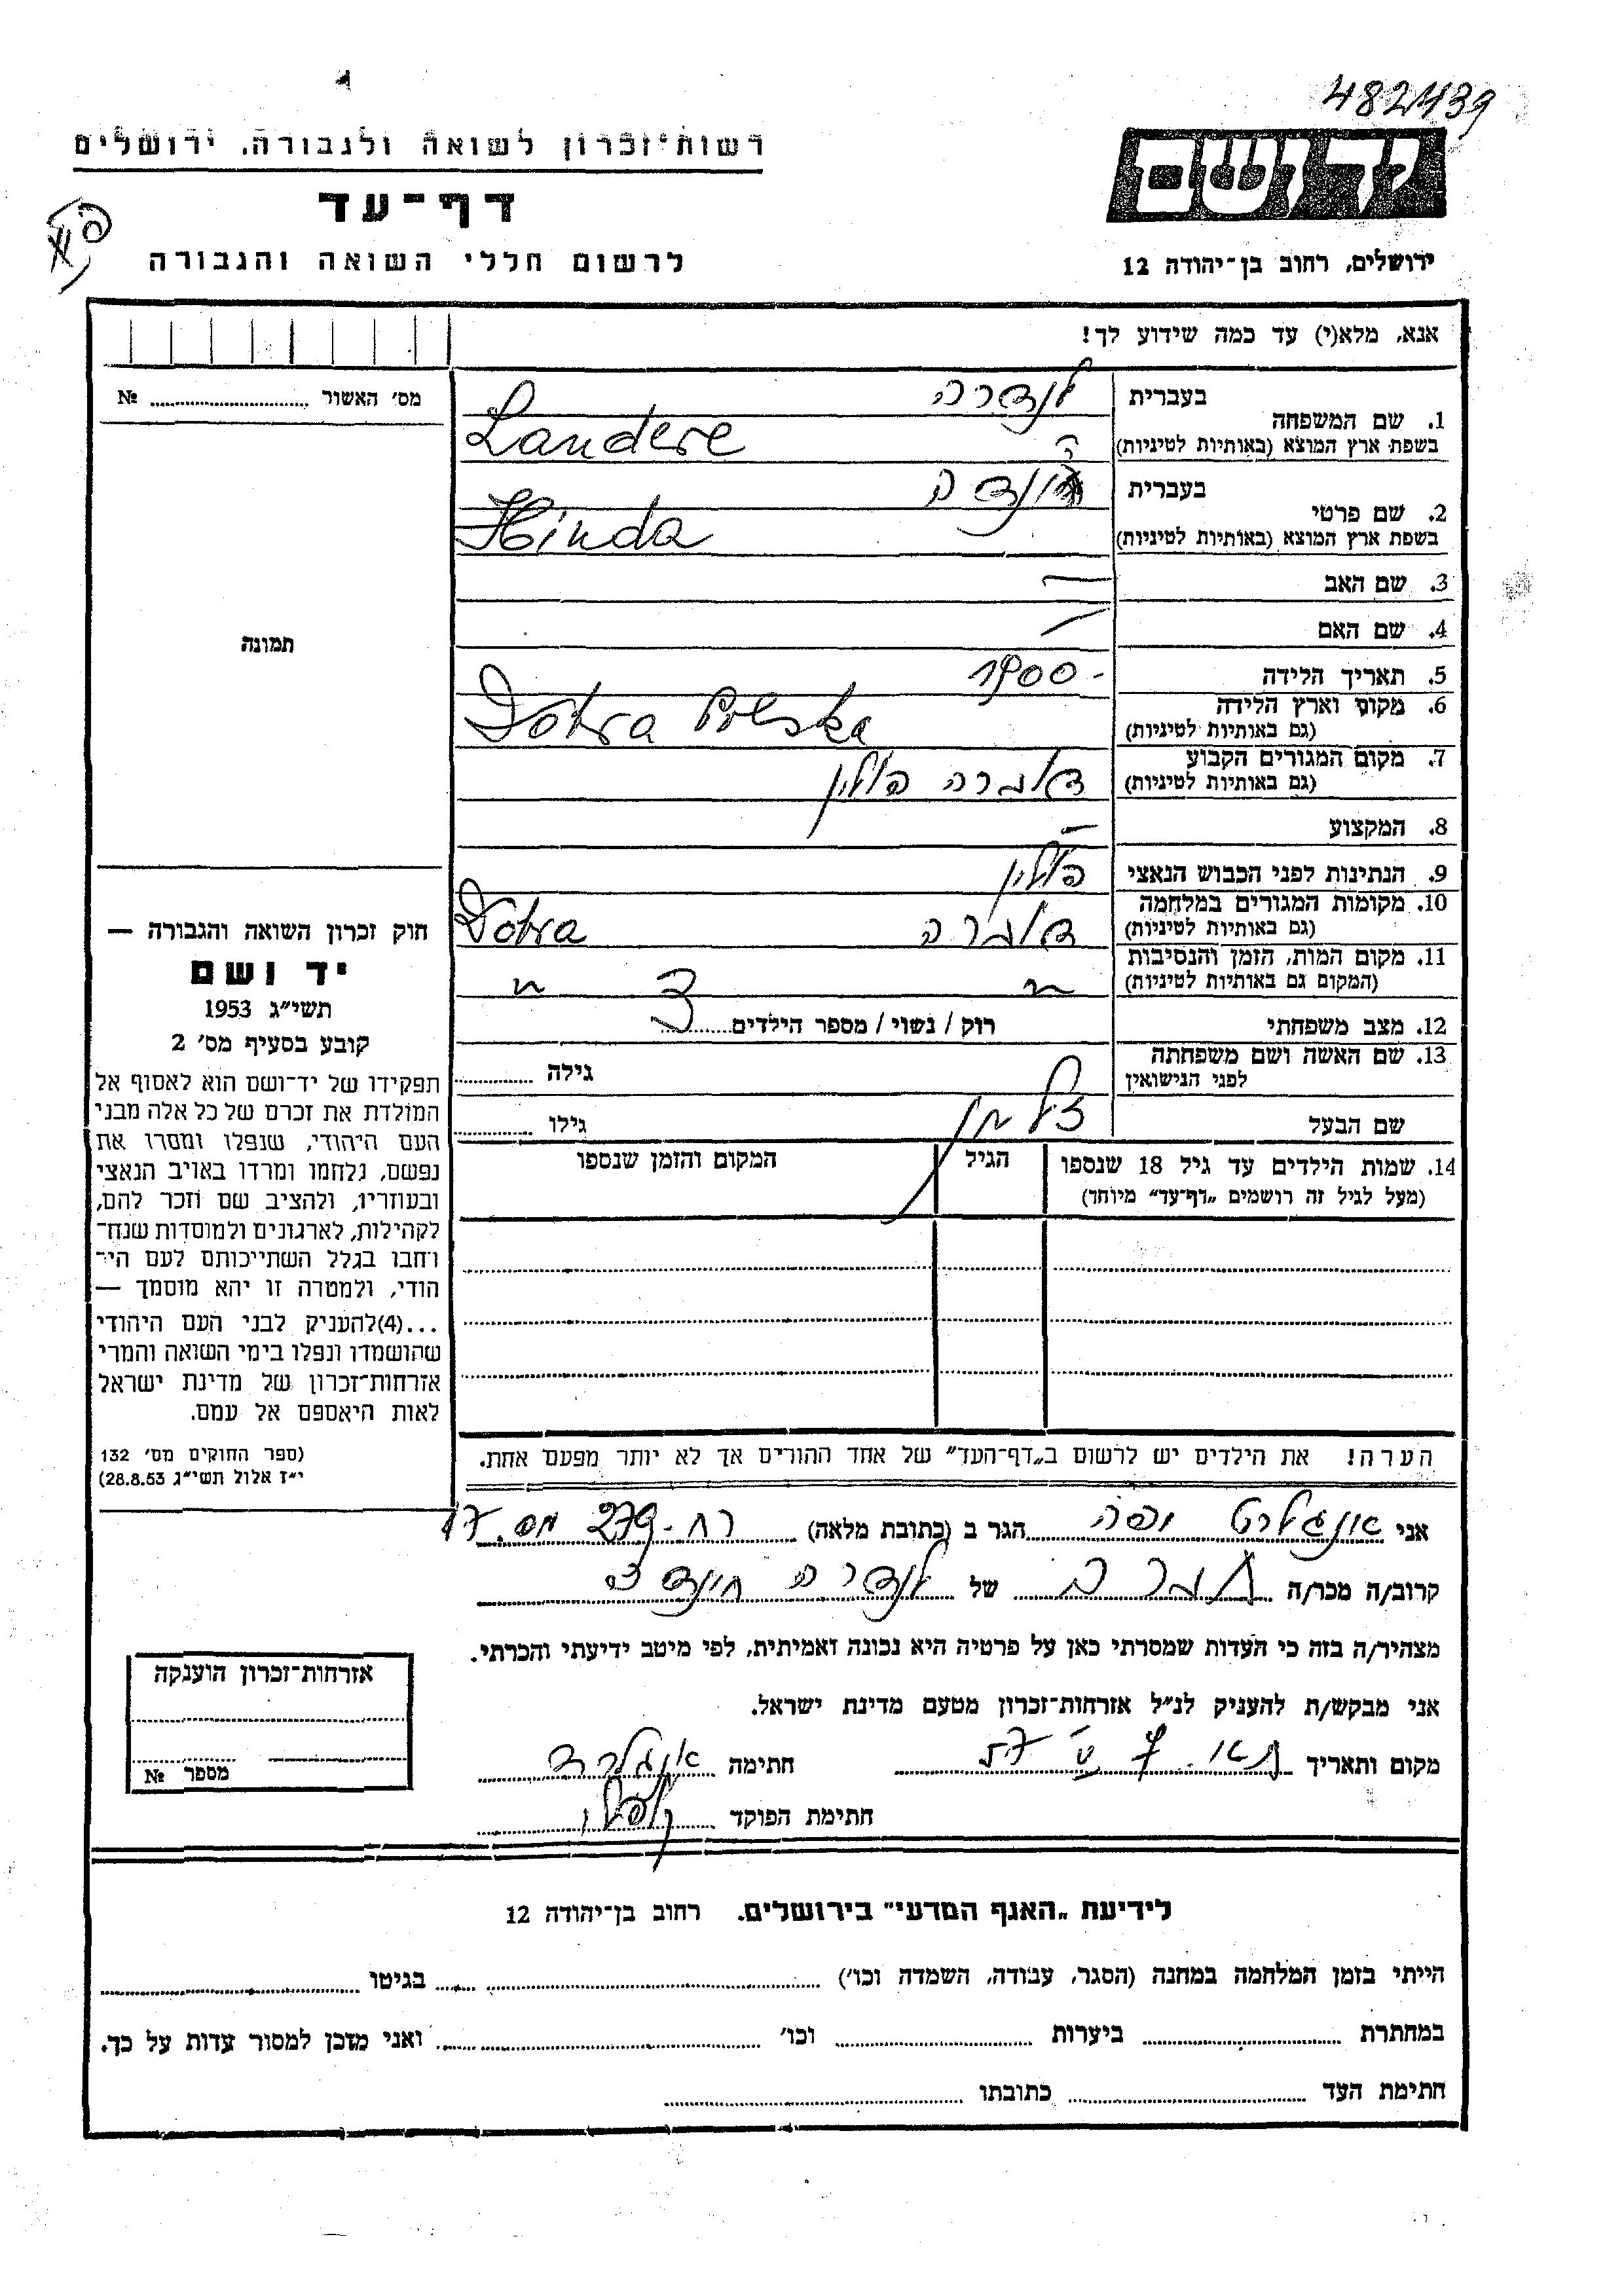 482439
יד ושם
רשות־זכרון לשואה ולגבורה, ירושלים
דף־עד
לרשום חללי השואה והגבורה
ירושלים, רחוב בן־יהודה 12
אנא, מלא(י) עד כמה שידוע לך!
מס׳ האשור № 
1. שם המשפחה בעברית לנדרה
בשפת ארץ המוצא (באותיות לטיניות) Landere
2. שם פרטי בעברית הינדה
בשפת ארץ המוצא (באותיות לטיניות) Hinda
3. שם האב —
4. שם האם —
5. תאריך הלידה 1900-
6. מקום וארץ הלידה (גם באותיות לטיניות) Dobra Polska
7. מקום המגורים הקבוע (גם באותיות לטיניות) דוברה פולין
8. המקצוע —
9. הנתינות לפני הכבוש הנאצי פולין
10. מקומות המגורים במלחמה (גם באותיות לטיניות) דוברה Dobra
11. מקום המות, הזמן והנסיבות (המקום גם באותיות לטיניות) " "
12. מצב משפחתי רוק / נשוי / מספר הילדים
13. שם האשה ושם משפחתה לפני הנישואין גילה
שם הבעל זלמן גילו
14. שמות הילדים עד גיל 18 שנספו (מעל לגיל זה רושמים „דף־עד” מיוחד) הגיל המקום והזמן שנספו
הערה! את הילדים יש לרשום ב„דף־העד” של אחד ההורים אך לא יותר מפעם אחת.
תמונה
חוק זכרון השואה והגבורה —
יד ושם
תשי״ג 1953
קובע בסעיף מס׳ 2
תפקידו של יד־ושם הוא לאסוף אל
המולדת את זכרם של כל אלה מבני
העם היהודי, שנפלו ומסרו את
נפשם, נלחמו ומרדו באויב הנאצי
ובעוזריו, ולהציב שם וזכר להם,
לקהילות, לארגונים ולמוסדות שנח־
רחבו בגלל השתייכותם לעם הי־
הודי, ולמטרה זו יהא מוסמך —
...(4)להעניק לבני העם היהודי
שהושמדו ונפלו בימי השואה והמרי
אזרחות־זכרון של מדינת ישראל
לאות היאספם אל עמם.
(ספר החוקים מס׳ 132
י״ז אלול תשי״ג 28.8.53)
אני הגר ב (כתובת מלאה) רח-279 מס. 17
קרוב/ה מכר/ה של לנדרה הינדה
מצהיר/ה בזה כי העדות שמסרתי כאן על פרטיה היא נכונה ואמיתית, לפי מיטב ידיעתי והכרתי.
אני מבקש/ת להעניק לנ״ל אזרחות־זכרון מטעם מדינת ישראל.
מקום ותאריך חתימה
חתימת הפוקד
אזרחות־זכרון הוענקה
מספר №
לידיעת „האגף המדעי” בירושלים. רחוב בן־יהודה 12
הייתי בזמן המלחמה במחנה (הסגר, עבודה, השמדה וכו׳) בגיטו
במחתרת ביערות וכו׳ ואני מוכן למסור עדות על כך.
חתימת העד כתובתו